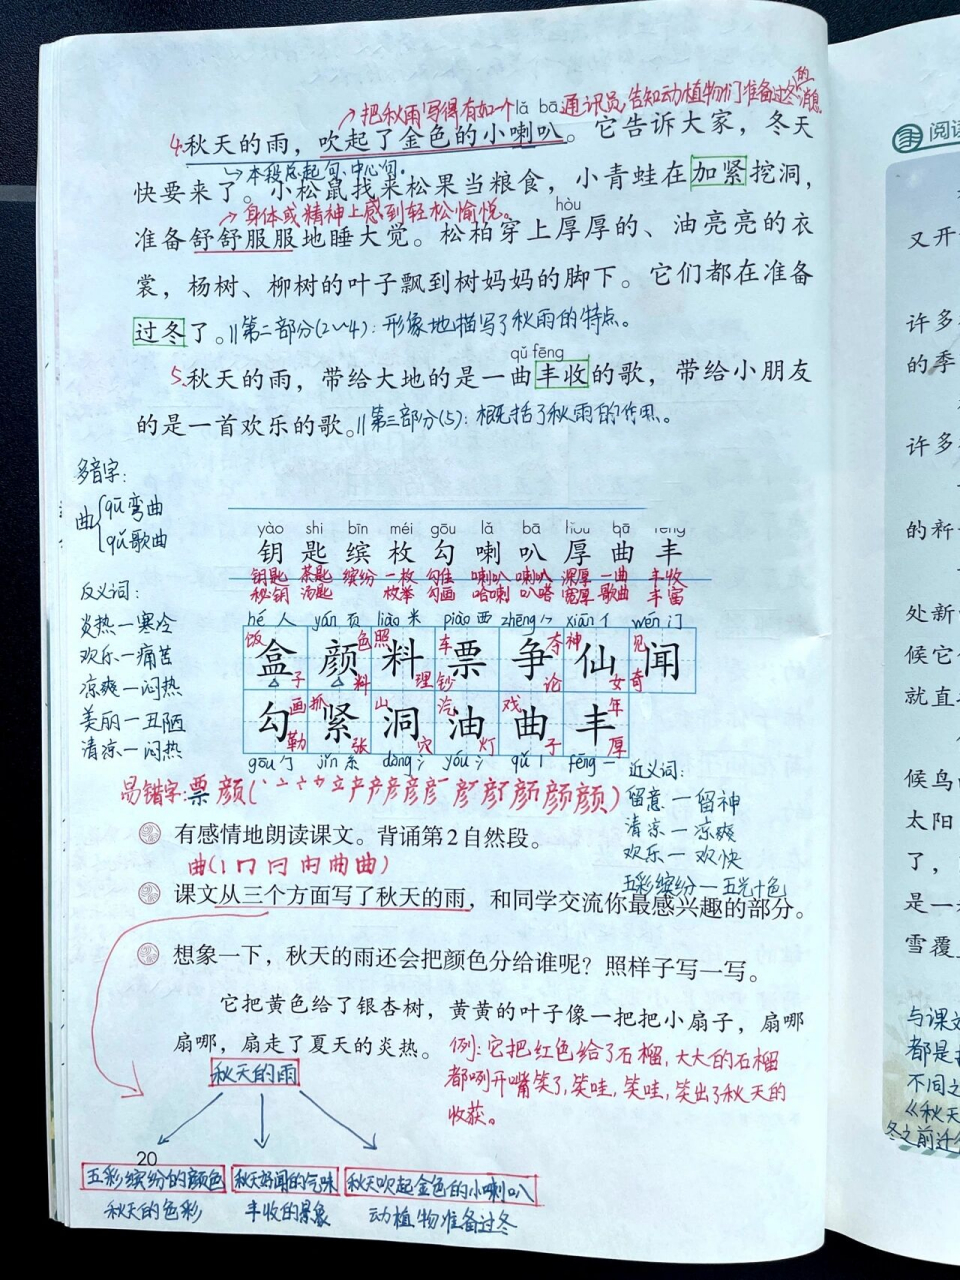 →把秋雨写得有如一个通讯员,告知动植物们准备过冬的消息
lǎ bā
4.秋天的雨，吹起了金色的小喇叭。它告诉大家，冬天
↳本段总起句,中心句。
快要来了。小松鼠找来松果当粮食，小青蛙在加紧挖洞，
→身体或精神上感到轻松愉悦。
hòu
准备舒舒服服地睡大觉。松柏穿上厚厚的、油亮亮的衣
裳，杨树、柳树的叶子飘到树妈妈的脚下。它们都在准备
过冬了。||第二部分(2~4):形象地描写了秋雨的特点。
qǔ fēng
5.秋天的雨，带给大地的是一曲丰收的歌，带给小朋友
的是一首欢乐的歌。||第三部分(5):概括了秋雨的作用。
多音字:
曲{qū弯曲
qǔ歌曲
反义词:
炎热—寒冷
欢乐—痛苦
凉爽—闷热
美丽—丑陋
清凉—闷热
yào shi bīn méi gōu lǎ bā hòu qǔ fēng
钥 匙 缤 枚 勾 喇 叭 厚 曲 丰
钥匙 茶匙 缤纷 一枚 勾住 喇叭 喇叭 深厚 一曲 丰收
秘钥 汤匙 枚举 勾画 哈喇 叭嗒 宽厚 歌曲 丰富
hé 人 yán 页 liào 米 piào 西 zhēng ⺈ xiān 亻 wén 门
饭 色 照 车 夺 神 见
盒 颜 料 票 争 仙 闻
子 料 理 钞 论 女 奇
画 抓 山 汽 戏 年
勾 紧 洞 油 曲 丰
勒 张 穴 灯 子 厚
gōu 勹 jǐn 糸 dòng 氵 yóu 氵 qǔ 丨 fēng 一
近义词:
留意—留神
清凉—凉爽
欢乐—欢快
五彩缤纷—五光十色
易错字:票 颜
有感情地朗读课文。背诵第2自然段。
曲(丨冂曰内曲曲)
课文从三个方面写了秋天的雨，和同学交流你最感兴趣的部分。
想象一下，秋天的雨还会把颜色分给谁呢？照样子写一写。
它把黄色给了银杏树，黄黄的叶子像一把把小扇子，扇哪
扇哪，扇走了夏天的炎热。
例:它把红色给了石榴,大大的石榴
都咧开嘴笑了,笑哇,笑哇,笑出了秋天的
收获。
秋天的雨
20
五彩缤纷的颜色 秋天好闻的气味 秋天吹起金色的小喇叭
秋天的色彩 丰收的景象 动植物准备过冬
阅读
又开
许多
的季
许多
的新
处新
候它
就直
候鸟
太阳
了，
是一
雪覆
与课文
都是
不同之
《秋天
冬之前